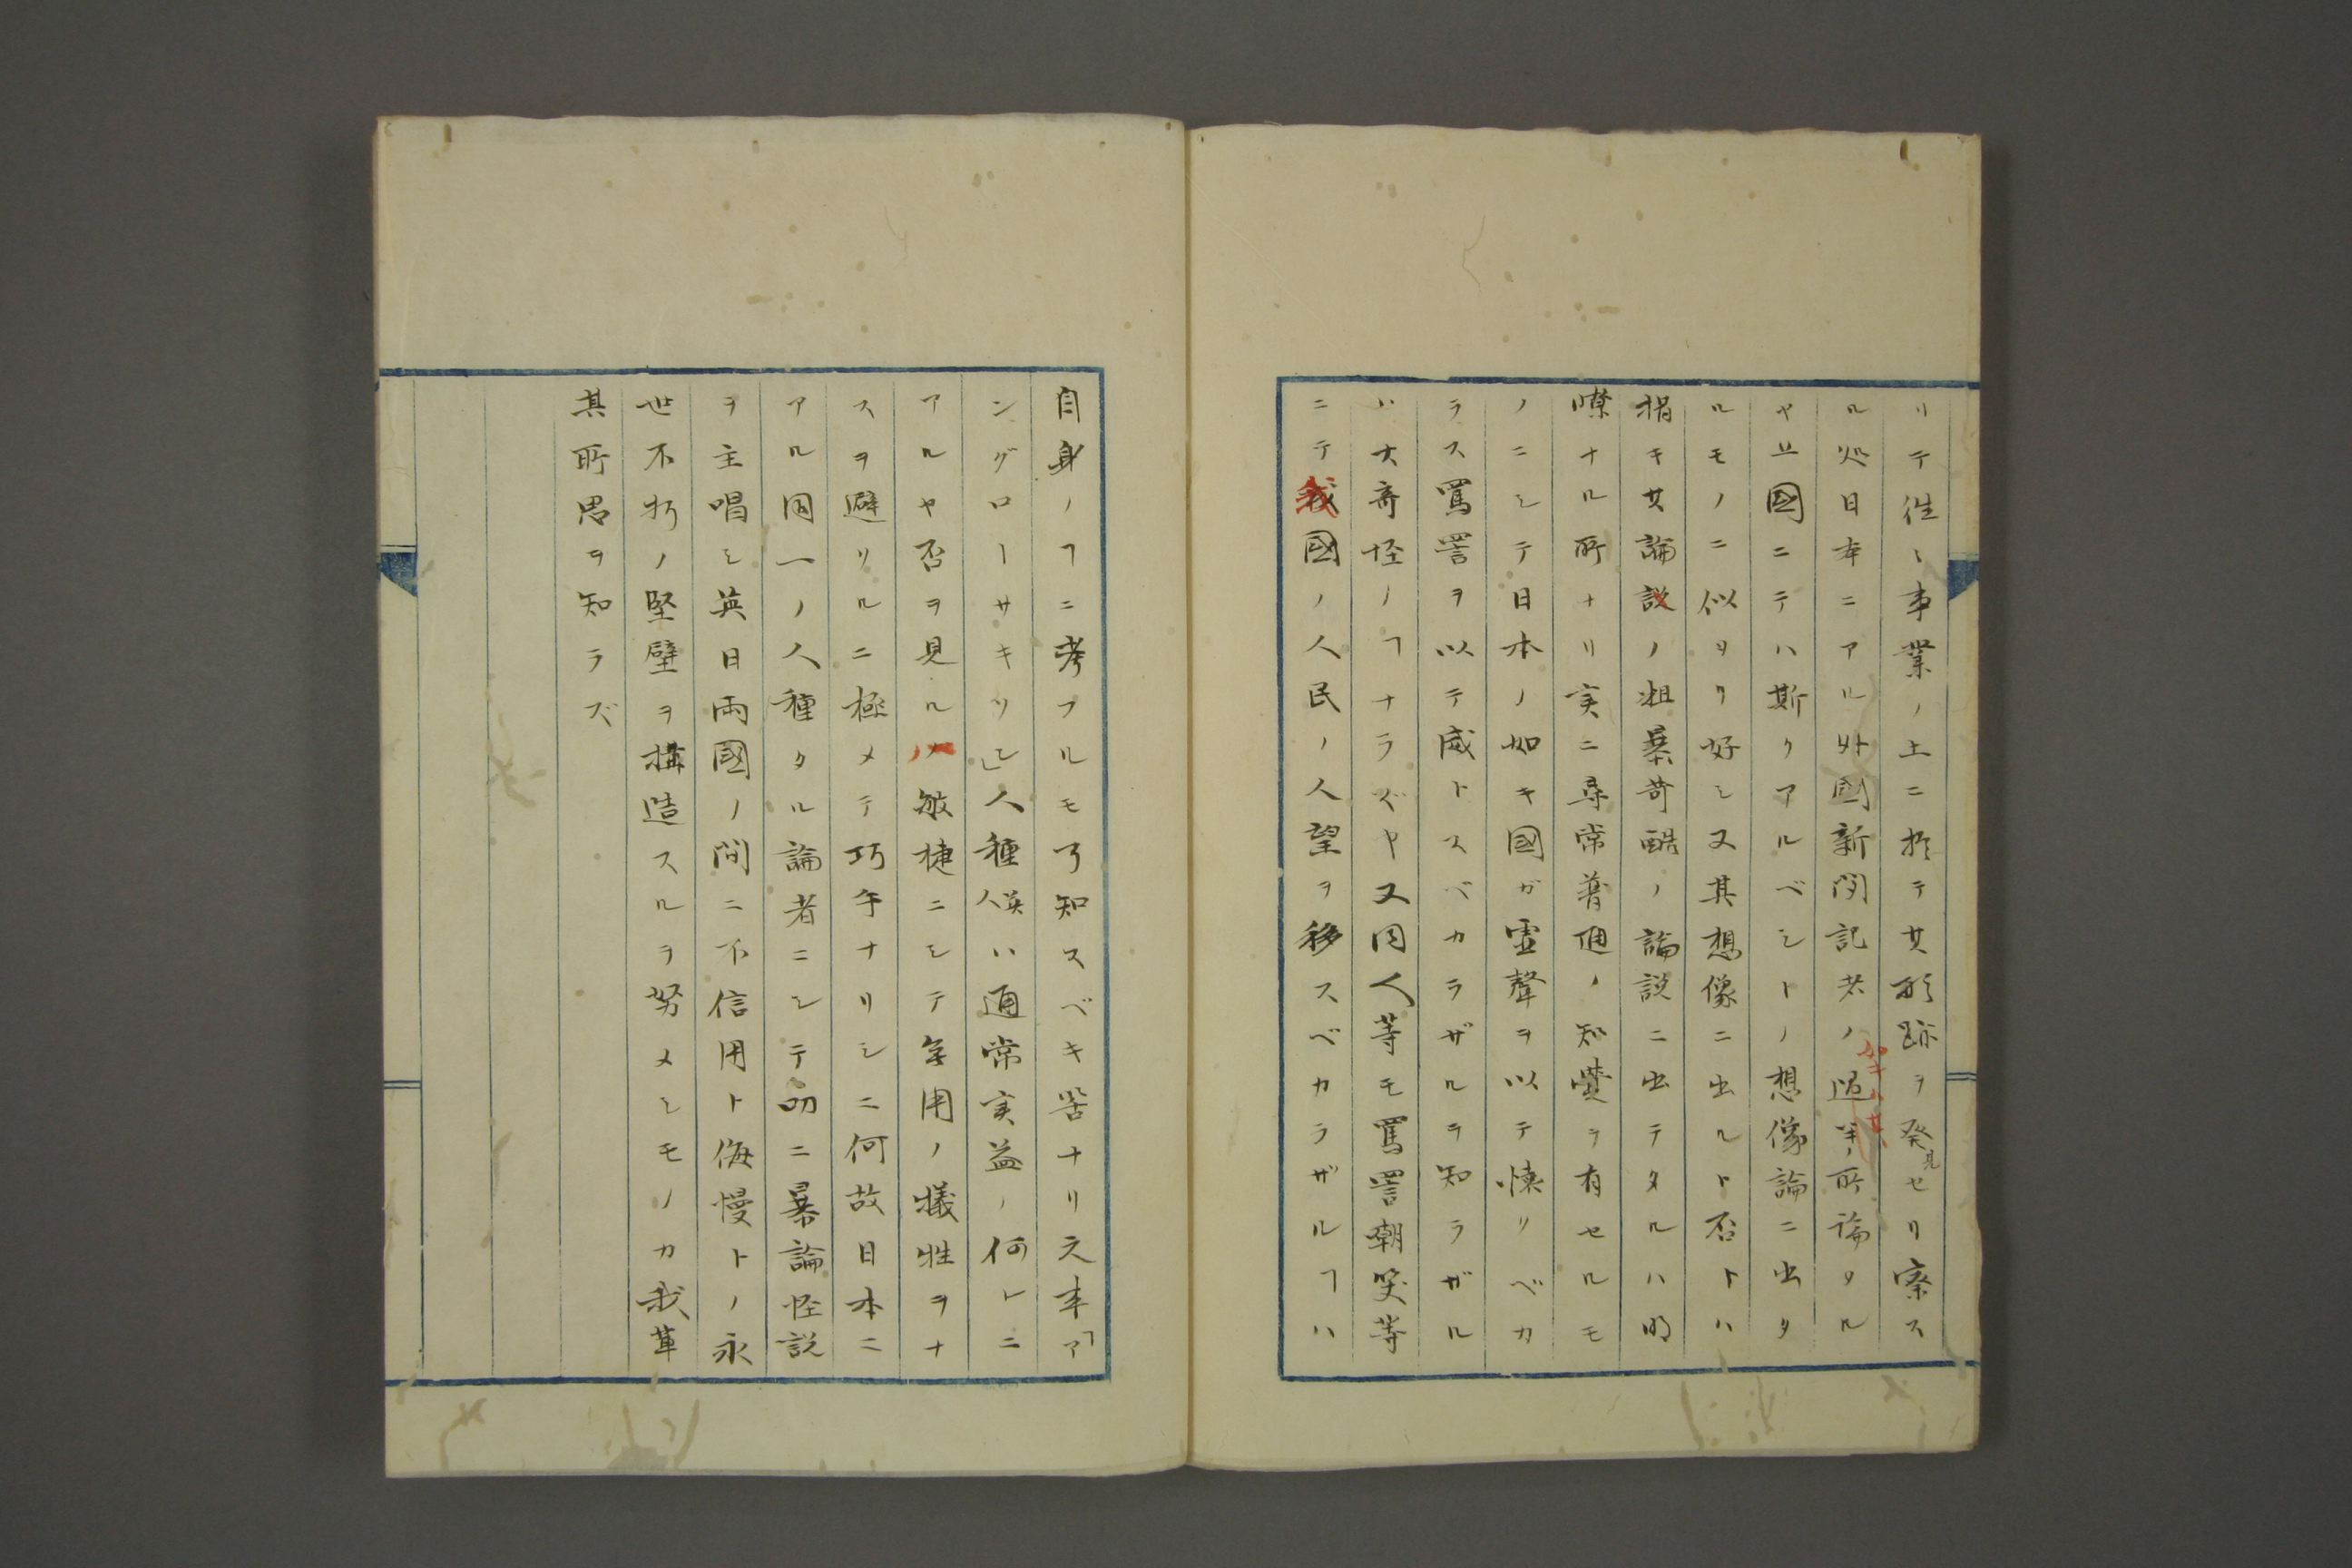 リテ徃〻事業ノ上ニ於テ其形跡ヲ発見セリ察ス
ル処日本ニアル外國新聞記者ノ過半ノ所論タル
ヤ並國ニテハ斯クアルベシトノ想像論ニ出タ
ルモノニ似タリ好シ又其想像ニ出ルト否トハ
措キ其論説ノ粗暴苛酷ノ論説ニ出テタルハ明
瞭ナル所ナリ実ニ尋常普通ノ知覺ヲ有セルモ
ノニシテ日本ノ如キ國ガ虚聲ヲ以テ懐リベカ
ラス罵詈ヲ以テ威トスベカラザルヲ知ラザル
ハ大奇怪ノヿナラズヤ又同人等モ罵詈嘲笑等
ニテ我國ノ人民ノ人望ヲ移スベカラザルヿハ
自身ノヿニ考フルモ了知スベキ筈ナリ元来「ア
ングローサキソン」人種英人ハ通常実益ノ何レニ
アルヤ否ヲ見ルノ敏捷ニシテ無用ノ犠牲ヲナ
スヲ避リルニ極メテ巧手ナリシニ何故日本ニ
アル同一ノ人種タル論者ニシテ切ニ暴論怪説
ヲ主唱シ英日両國ノ間ニ不信用ト侮慢トノ永
世不朽ノ堅壁ヲ構造スルヲ努メシモノカ我輩
其所思ヲ知ラズ